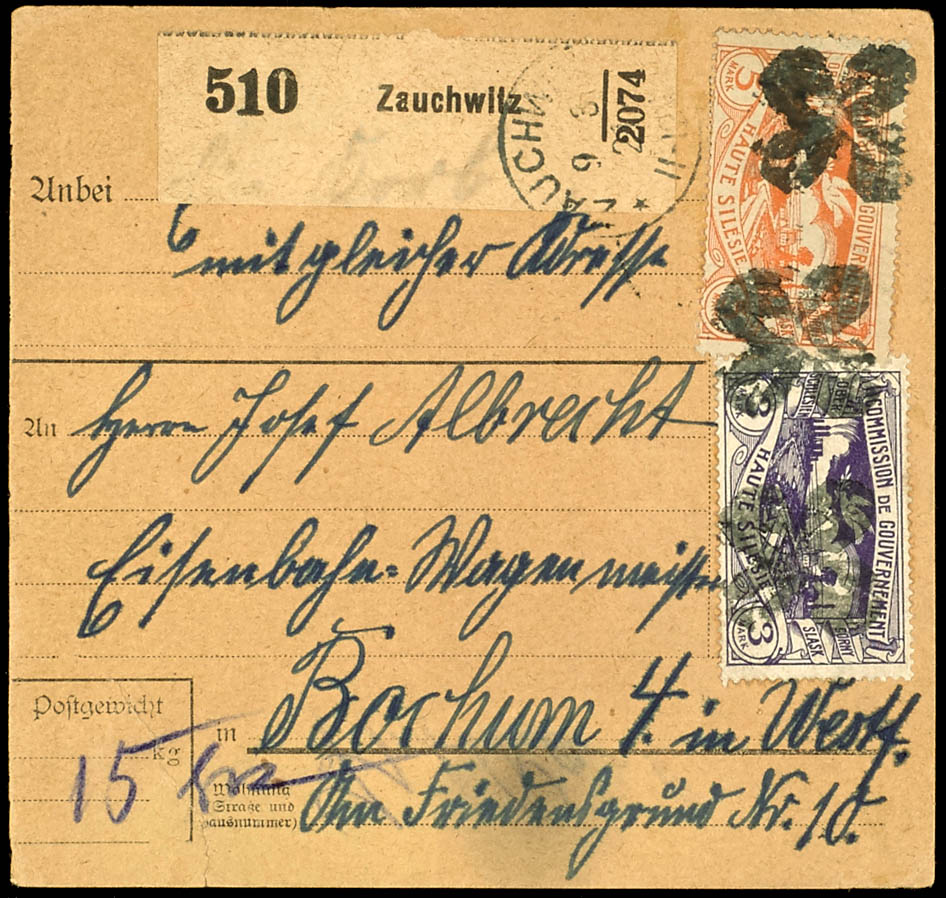 510 Zauchwitz 2074
Anbei
mit gleicher Adresse
An Herrn Josef Albrecht
Eisenbahn-Wagenmeister
Postgewicht
15 kg
in Bochum 4. in Westf.
Wohnung
(Straße und
Hausnummer)
Am Friedensgrund Nr. 10.
5
MARK
HAUTE SILESIE
GOUVERNEMENT
3
MARK
COMMISSION DE GOUVERNEMENT
HAUTE SILESIE
GORNY
SLASK
3
MARK